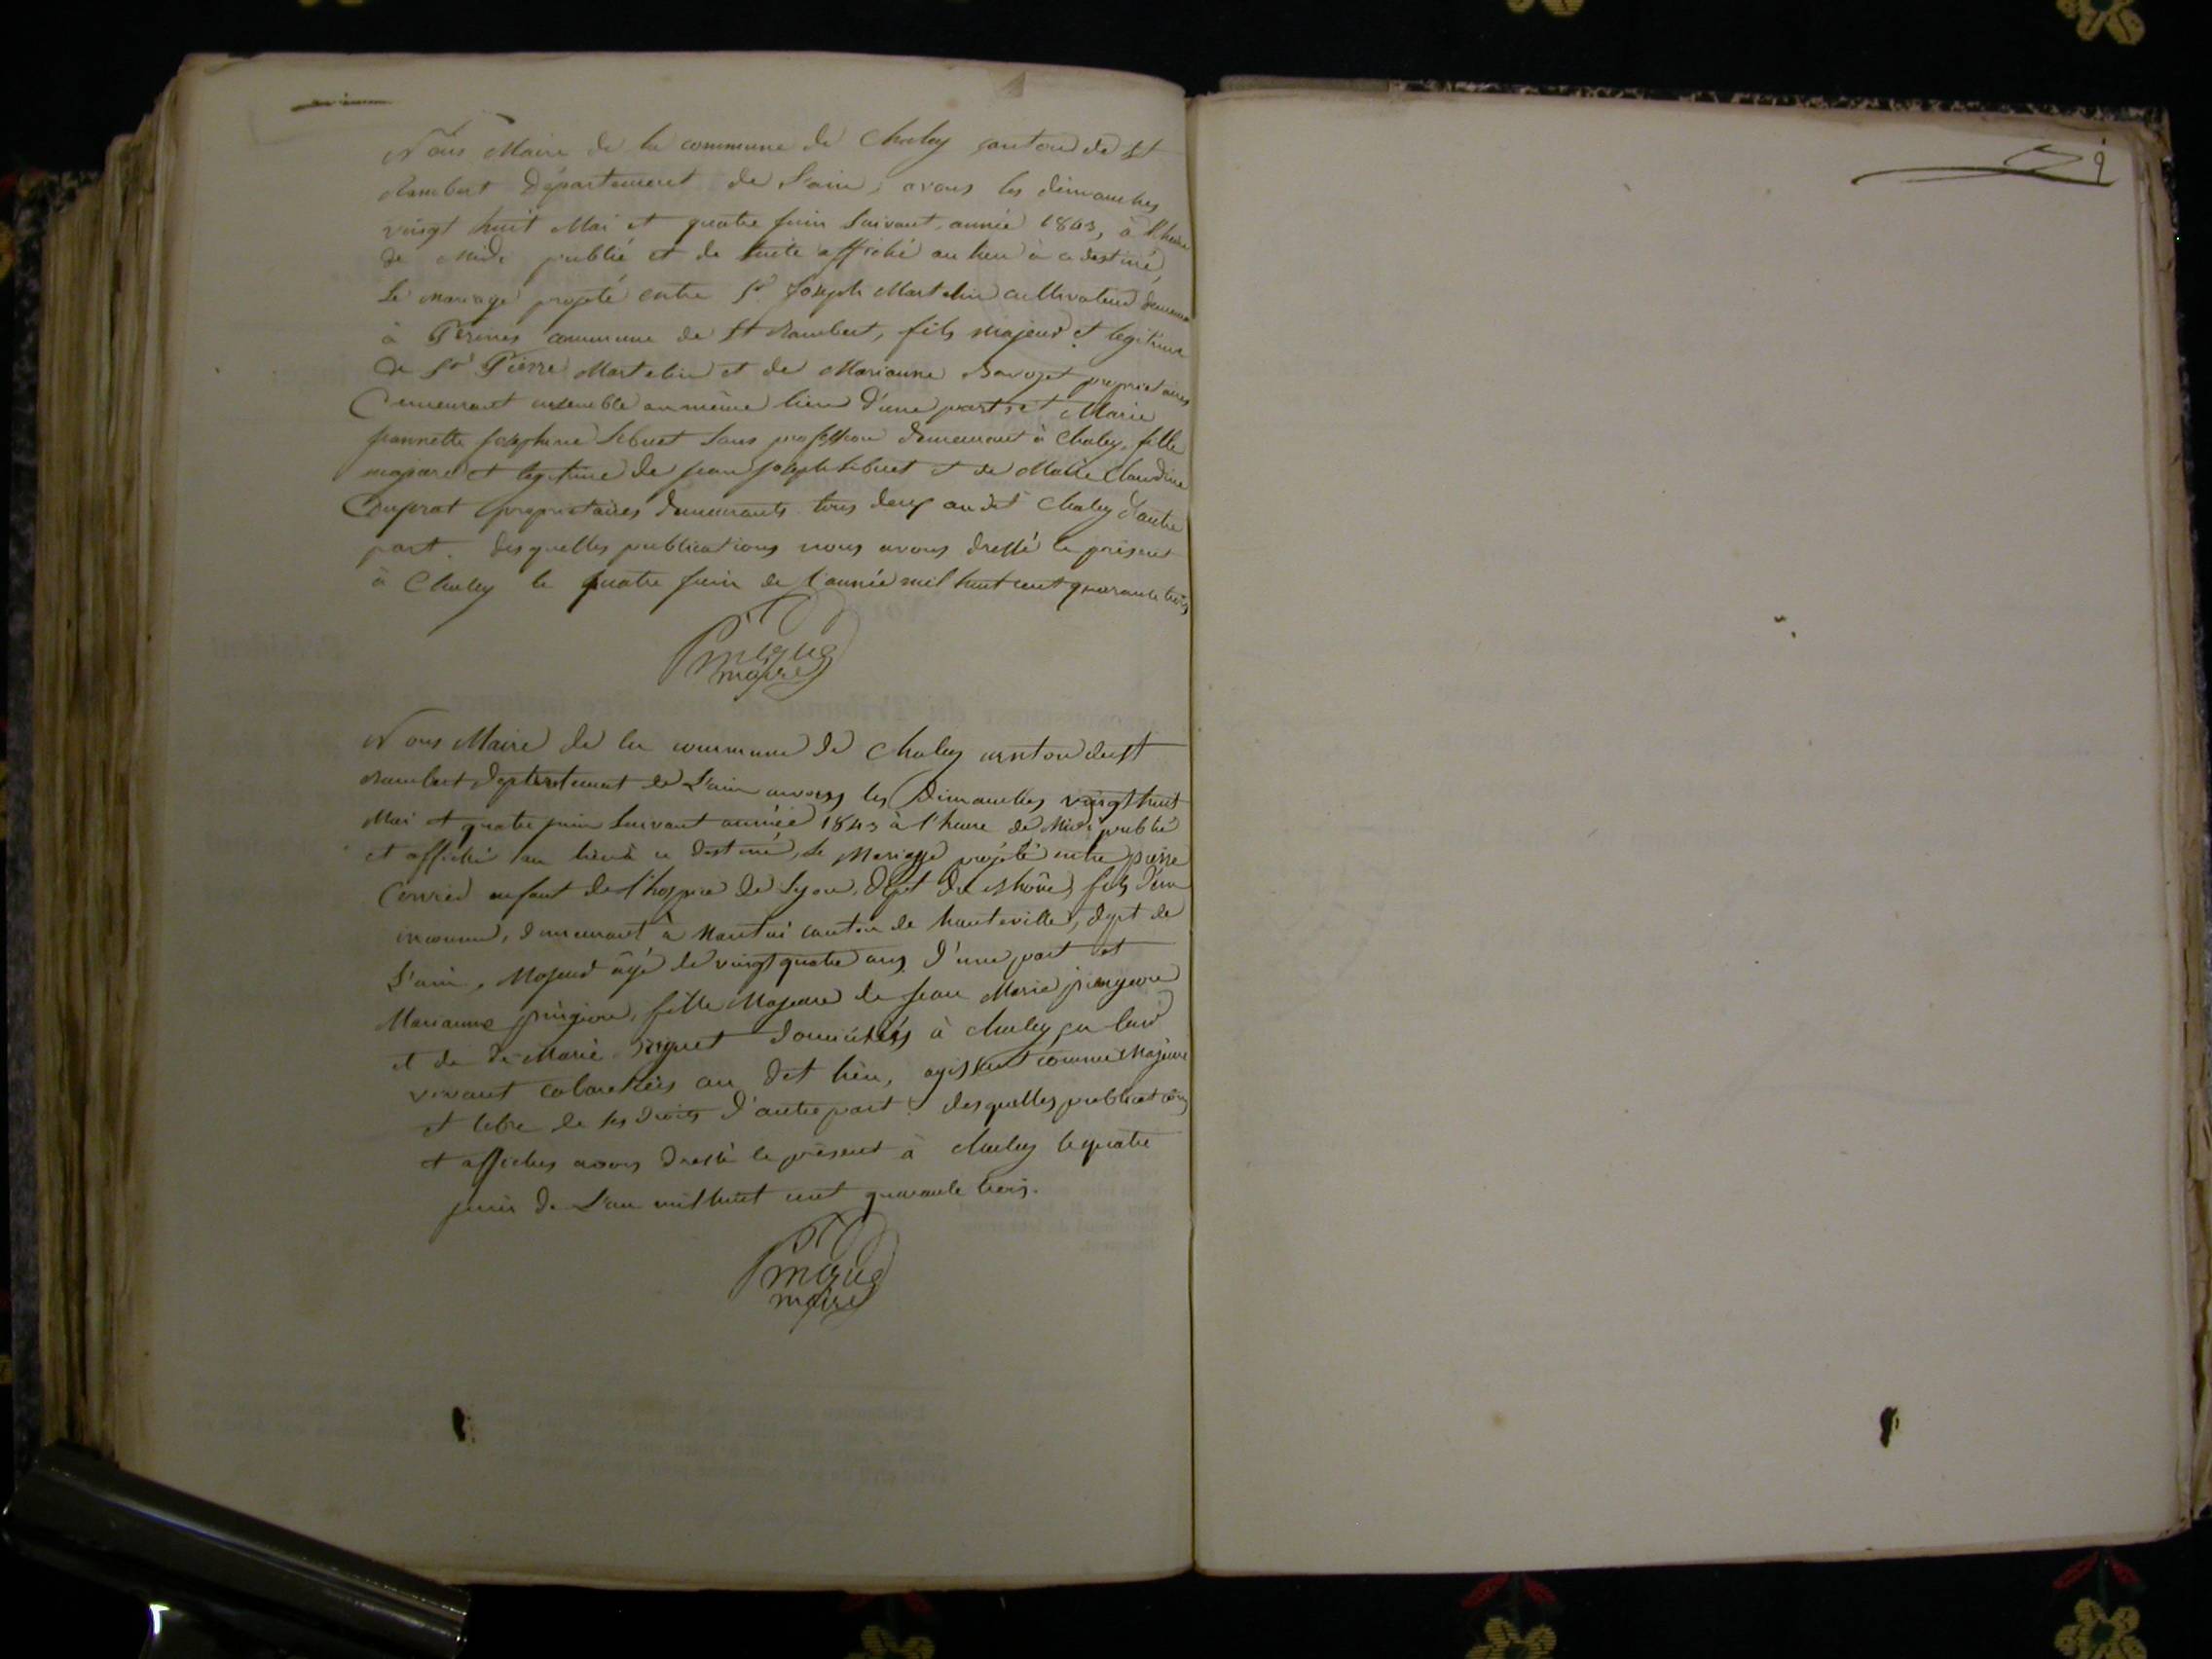 Nous Maire de la commune de Chaley canton de St
Rambert Département de l'ain, avons les dimanches
vingt huit Mai et quatre juin suivant, année 1843, à l'heure
de Midi publié et de suite affiché au lieu à ce destiné,
Le mariage projeté entre Sr Joseph Martelin cultivateur demeurant
à commune de St Rambert, fils majeur et legitime
de Sr Pierre Martelin et de Marianne proprietaires
demeurant ensemble au même lieu d'une part et Marie
Jeannette Josephine Sibuet sans profession demeurant à Chaley, fille
majeure et legitime de Jean Joseph Sibuet et de Marie Claudine
Duprat proprietaires demeurants tous deux au dit Chaley d'autre
part. desquelles publications nous avons dressé le présent
à Chaley le quatre juin de l'année mil huit cent quarante trois
maire
Nous Maire de la commune de Chaley canton de St
Rambert departement de L'ain avons les Dimanches vingt huit
Mai et quatre juin suivant année 1843 à l'heure de Midi publié
et affiché au lieu à ce destiné, Le Mariage projeté entre pierre
enfant de l'hospice de Lyon, dept du Rhône, fils d'un
inconnu, demeurant à canton de hauteville, dept de
L'ain, Majeur âgé de vingt quatre ans d'une part et
Marianne pingeon, fille Majeure de Jean Marie pingeon
et de Marie domiciliés à Chaley,
vivant cabaretiers au dit lieu, agissant comme Majeure
et libre de ses droits d'autre part. desquelles publications
et affiches avons dressé le présent à Chaley le quatre
juin de L'an mil huit cent quarante trois.
maire
9